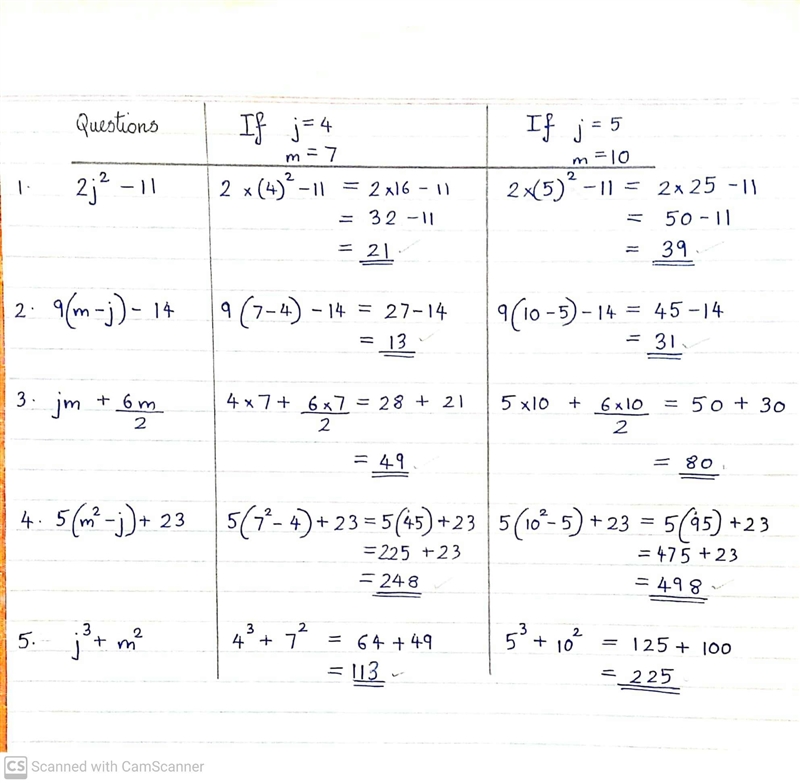 Questions If j = 4 If j = 5
m = 7 m = 10
1. 2j² - 11 2 × (4)² - 11 = 2 × 16 - 11 2 × (5)² - 11 = 2 × 25 - 11
= 32 - 11 = 50 - 11
= 21 = 39
2. 9(m - j) - 14 9(7 - 4) - 14 = 27 - 14 9(10 - 5) - 14 = 45 - 14
= 13 = 31
3. jm + 6m/2 4 × 7 + 6×7/2 = 28 + 21 5 × 10 + 6×10/2 = 50 + 30
= 49 = 80
4. 5(m² - j) + 23 5(7² - 4) + 23 = 5(45) + 23 5(10² - 5) + 23 = 5(95) + 23
= 225 + 23 = 475 + 23
= 248 = 498
5. j³ + m² 4³ + 7² = 64 + 49 5³ + 10² = 125 + 100
= 113 = 225
CS Scanned with CamScanner